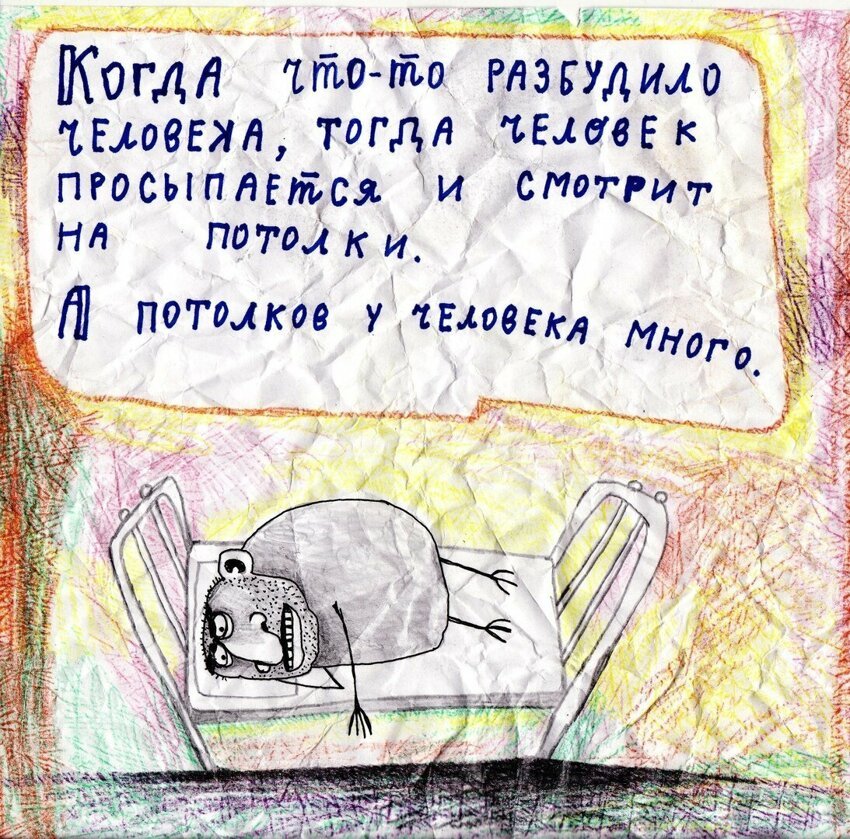 Когда что-то разбудило
человека, тогда человек
просыпается и смотрит
на потолки.
А потолков у человека много.